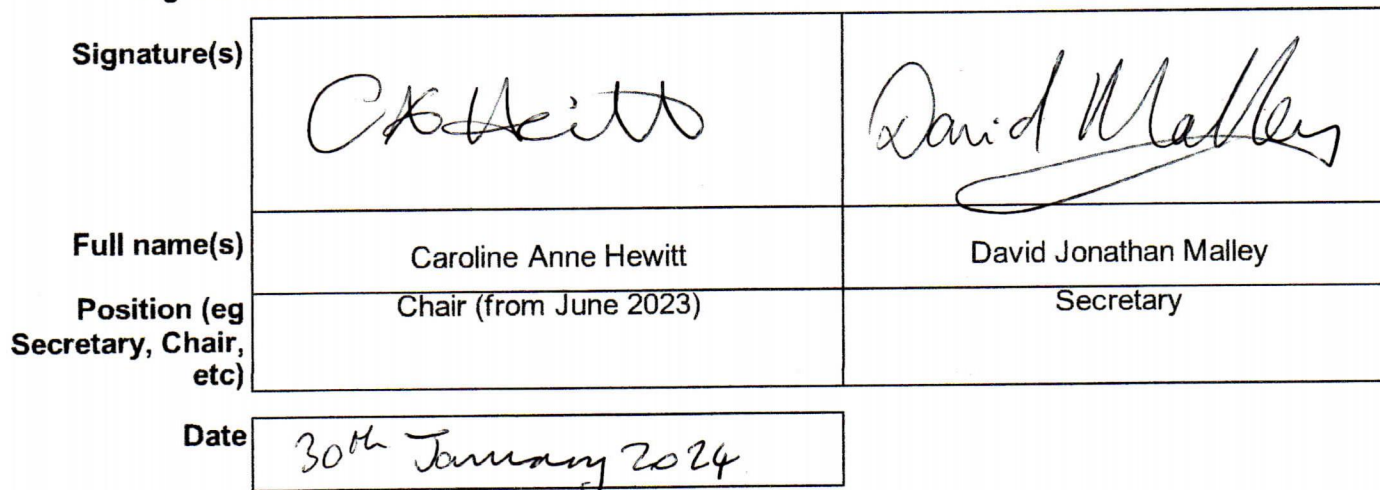 Signature(s)
CA Hewitt
David Malley
Full name(s)
Caroline Anne Hewitt
David Jonathan Malley
Position (eg
Secretary, Chair,
etc)
Chair (from June 2023)
Secretary
Date
30th January 2024